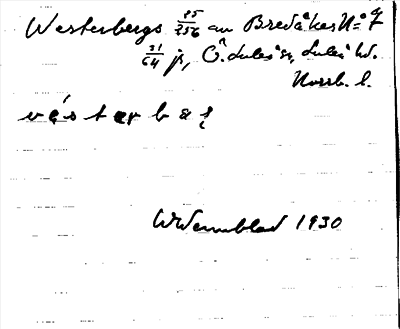 Westerbergs 85/256 av Bredåker N:o 7
31/64 jr, Ö. Luleå sn, Luleå hd.
Norrb. l.
W Wennblad 1930